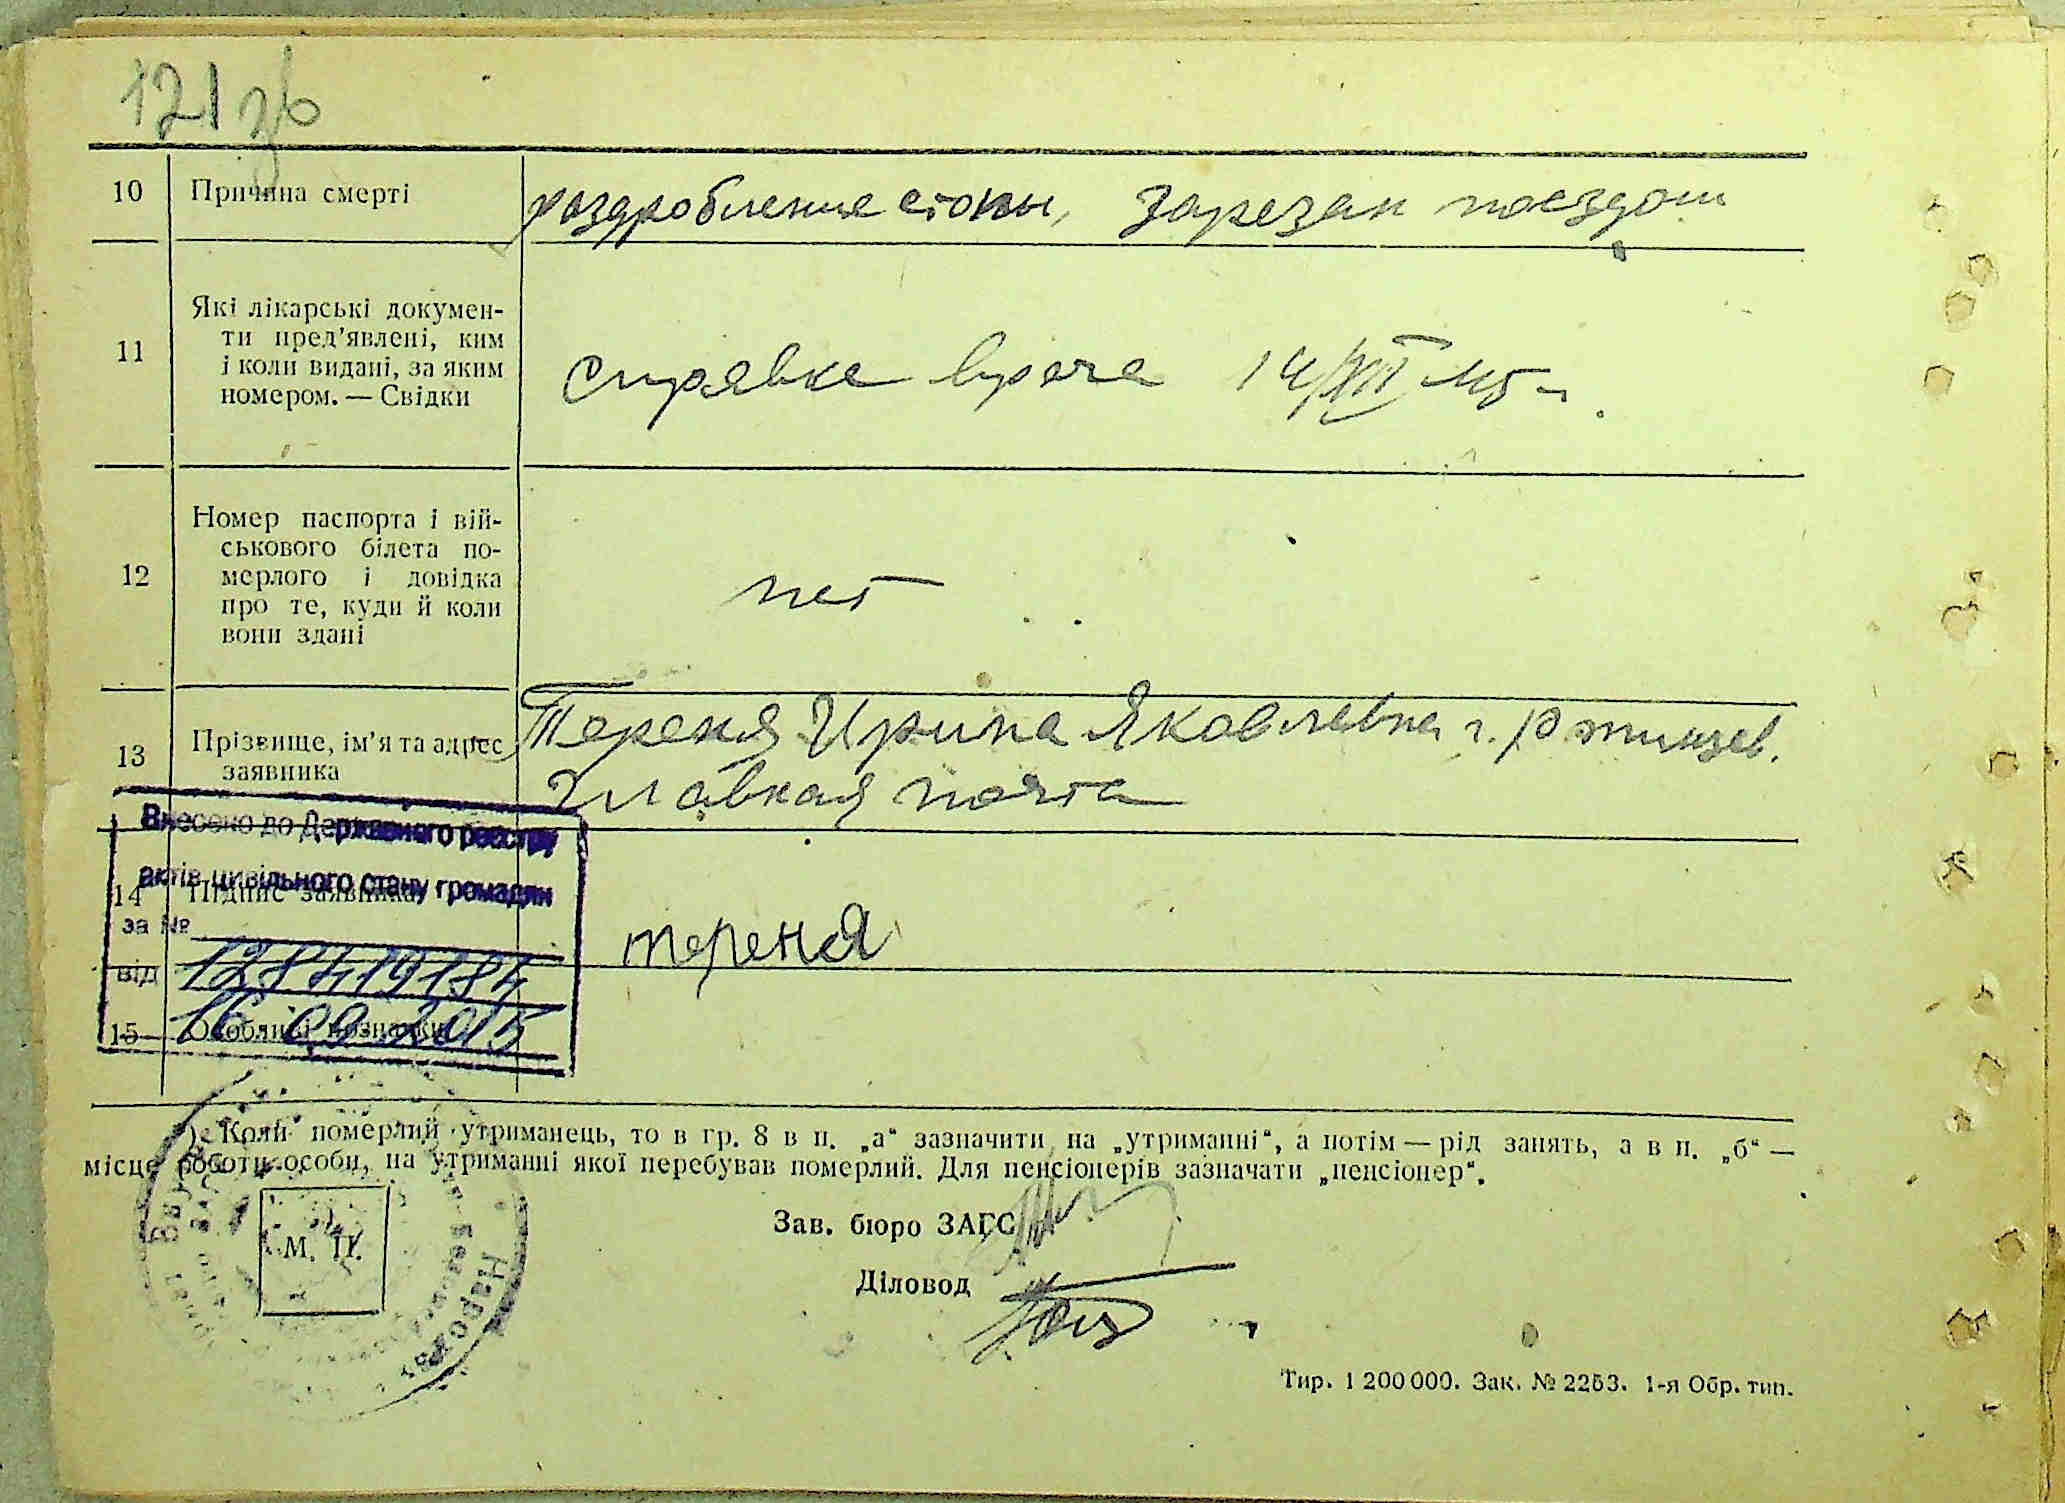 121 зв
10 Причина смерті раздробление стопы, зарезан поездом
11 Які лікарські докумен-
ти пред'явлені, ким
і коли видані, за яким
номером. — Свідки
справка врача 14/XII 45 г.
12 Номер паспорта і вій-
ськового білета по-
мерлого і довідка
про те, куди й коли
вони здані
нет
13 Прізвище, ім'я та адрес
заявника
Тереня Ирина Яковлевна г.
Главная почта
Внесено до Державного реєстру
актів цивільного стану громадян
14 Підпис заявника
тереня
за №
128419184
від
16 09 2015
15 Особливі позначки
Коли померлий утриманець, то в гр. 8 в п. „а“ зазначити на „утриманні“, а потім — рід занять, а в п. „б“ —
місце роботи особи, на утриманні якої перебував померлий. Для пенсіонерів зазначати „пенсіонер“.
Зав. бюро ЗАГС
М. П.
Діловод
Тир. 1 200 000. Зак. № 2253. 1-я Обр. тип.